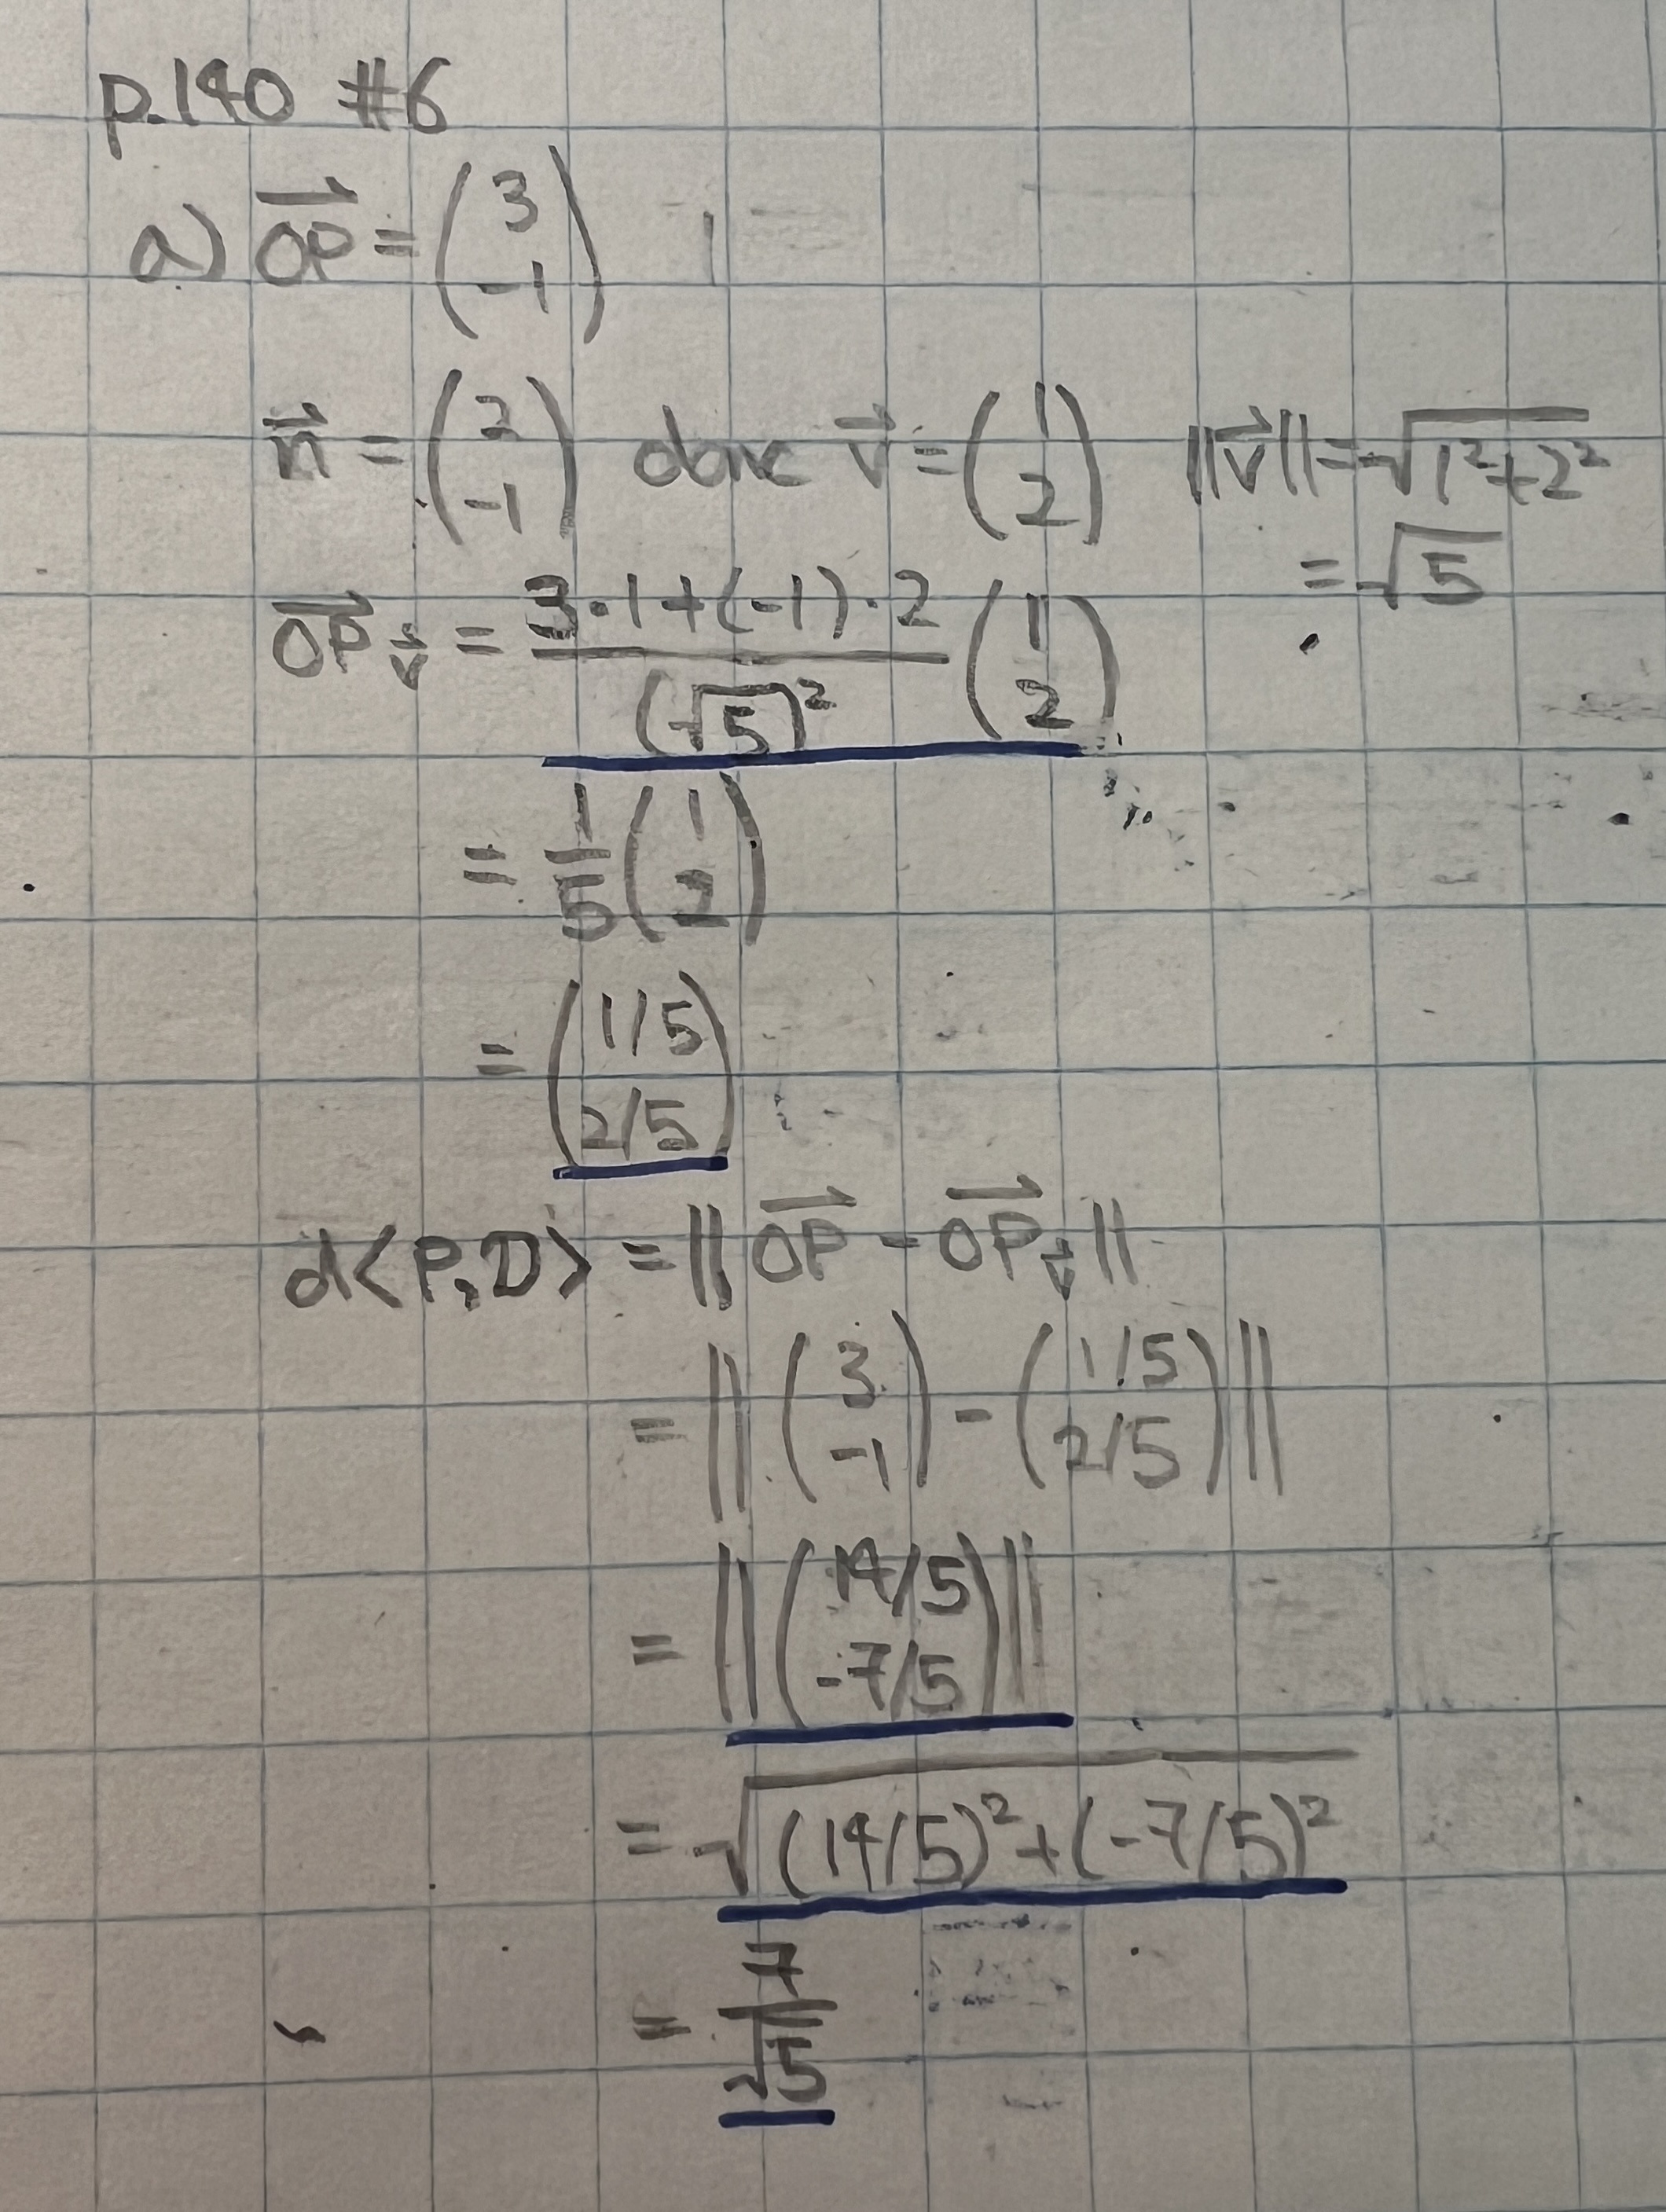 p.140 #6
a) $\overrightarrow{OP} = \begin{pmatrix} 3 \\ -1 \end{pmatrix}$
$\vec{n} = \begin{pmatrix} 2 \\ -1 \end{pmatrix}$ donc $\vec{v} = \begin{pmatrix} 1 \\ 2 \end{pmatrix}$ $||\vec{v}|| = \sqrt{1^2+2^2}$
$= \sqrt{5}$
$\overrightarrow{OP}_{\vec{v}} = \frac{3 \cdot 1 + (-1) \cdot 2}{(\sqrt{5})^2} \begin{pmatrix} 1 \\ 2 \end{pmatrix}$
$= \frac{1}{5} \begin{pmatrix} 1 \\ 2 \end{pmatrix}$
$= \begin{pmatrix} 1/5 \\ 2/5 \end{pmatrix}$
$d\langle P, D \rangle = || \overrightarrow{OP} - \overrightarrow{OP}_{\vec{v}} ||$
$= \left|\left| \begin{pmatrix} 3 \\ -1 \end{pmatrix} - \begin{pmatrix} 1/5 \\ 2/5 \end{pmatrix} \right|\right|$
$= \left|\left| \begin{pmatrix} 14/5 \\ -7/5 \end{pmatrix} \right|\right|$
$= \sqrt{(14/5)^2 + (-7/5)^2}$
$= \frac{7}{\sqrt{5}}$